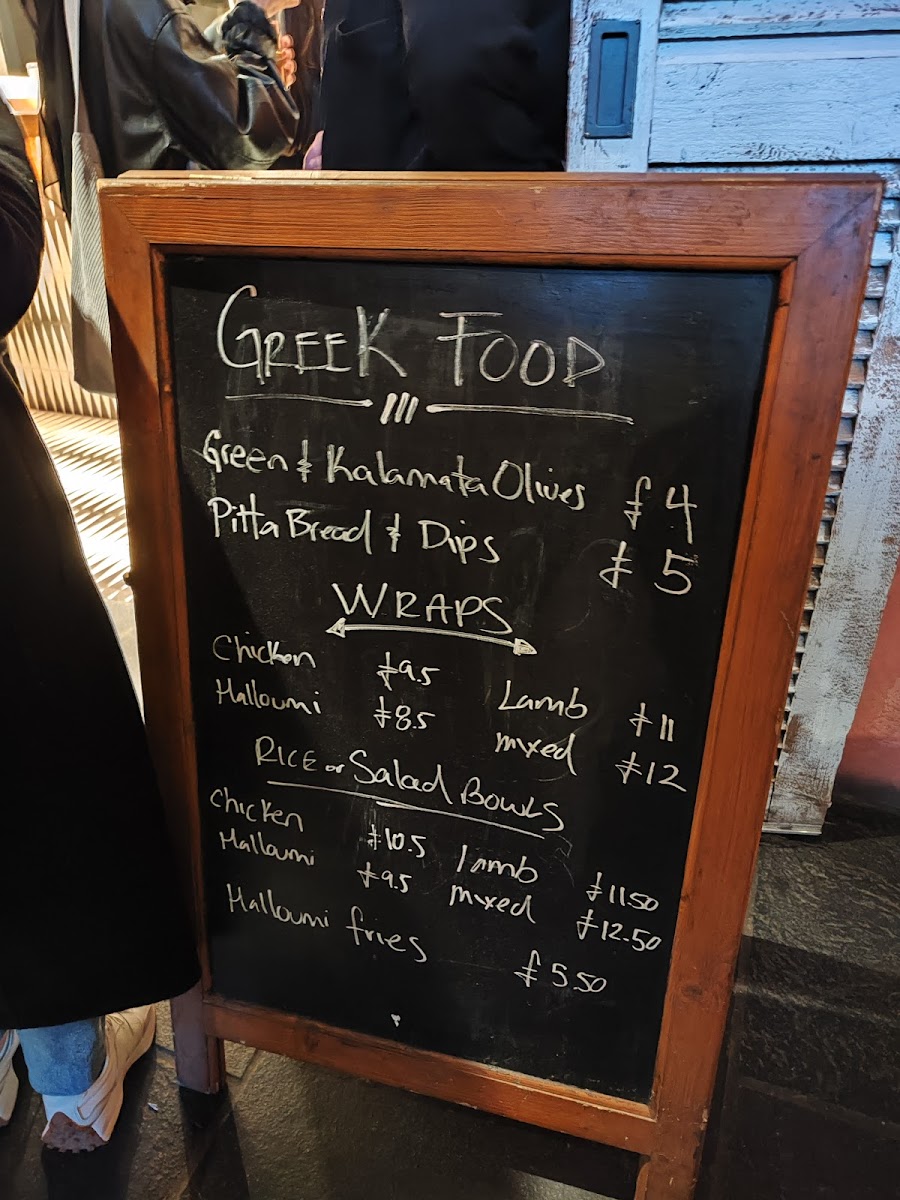 GREEK FOOD
Green & Kalamata Olives £4
Pitta Bread & Dips £5
WRAPS
Chicken £9.5 Lamb £11
Halloumi £8.5 mxed £12
RICE or Salad BOWLS
Chicken £10.5 lamb £11.50
Halloumi £9.5 mxed £12.50
Halloumi fries £5.50